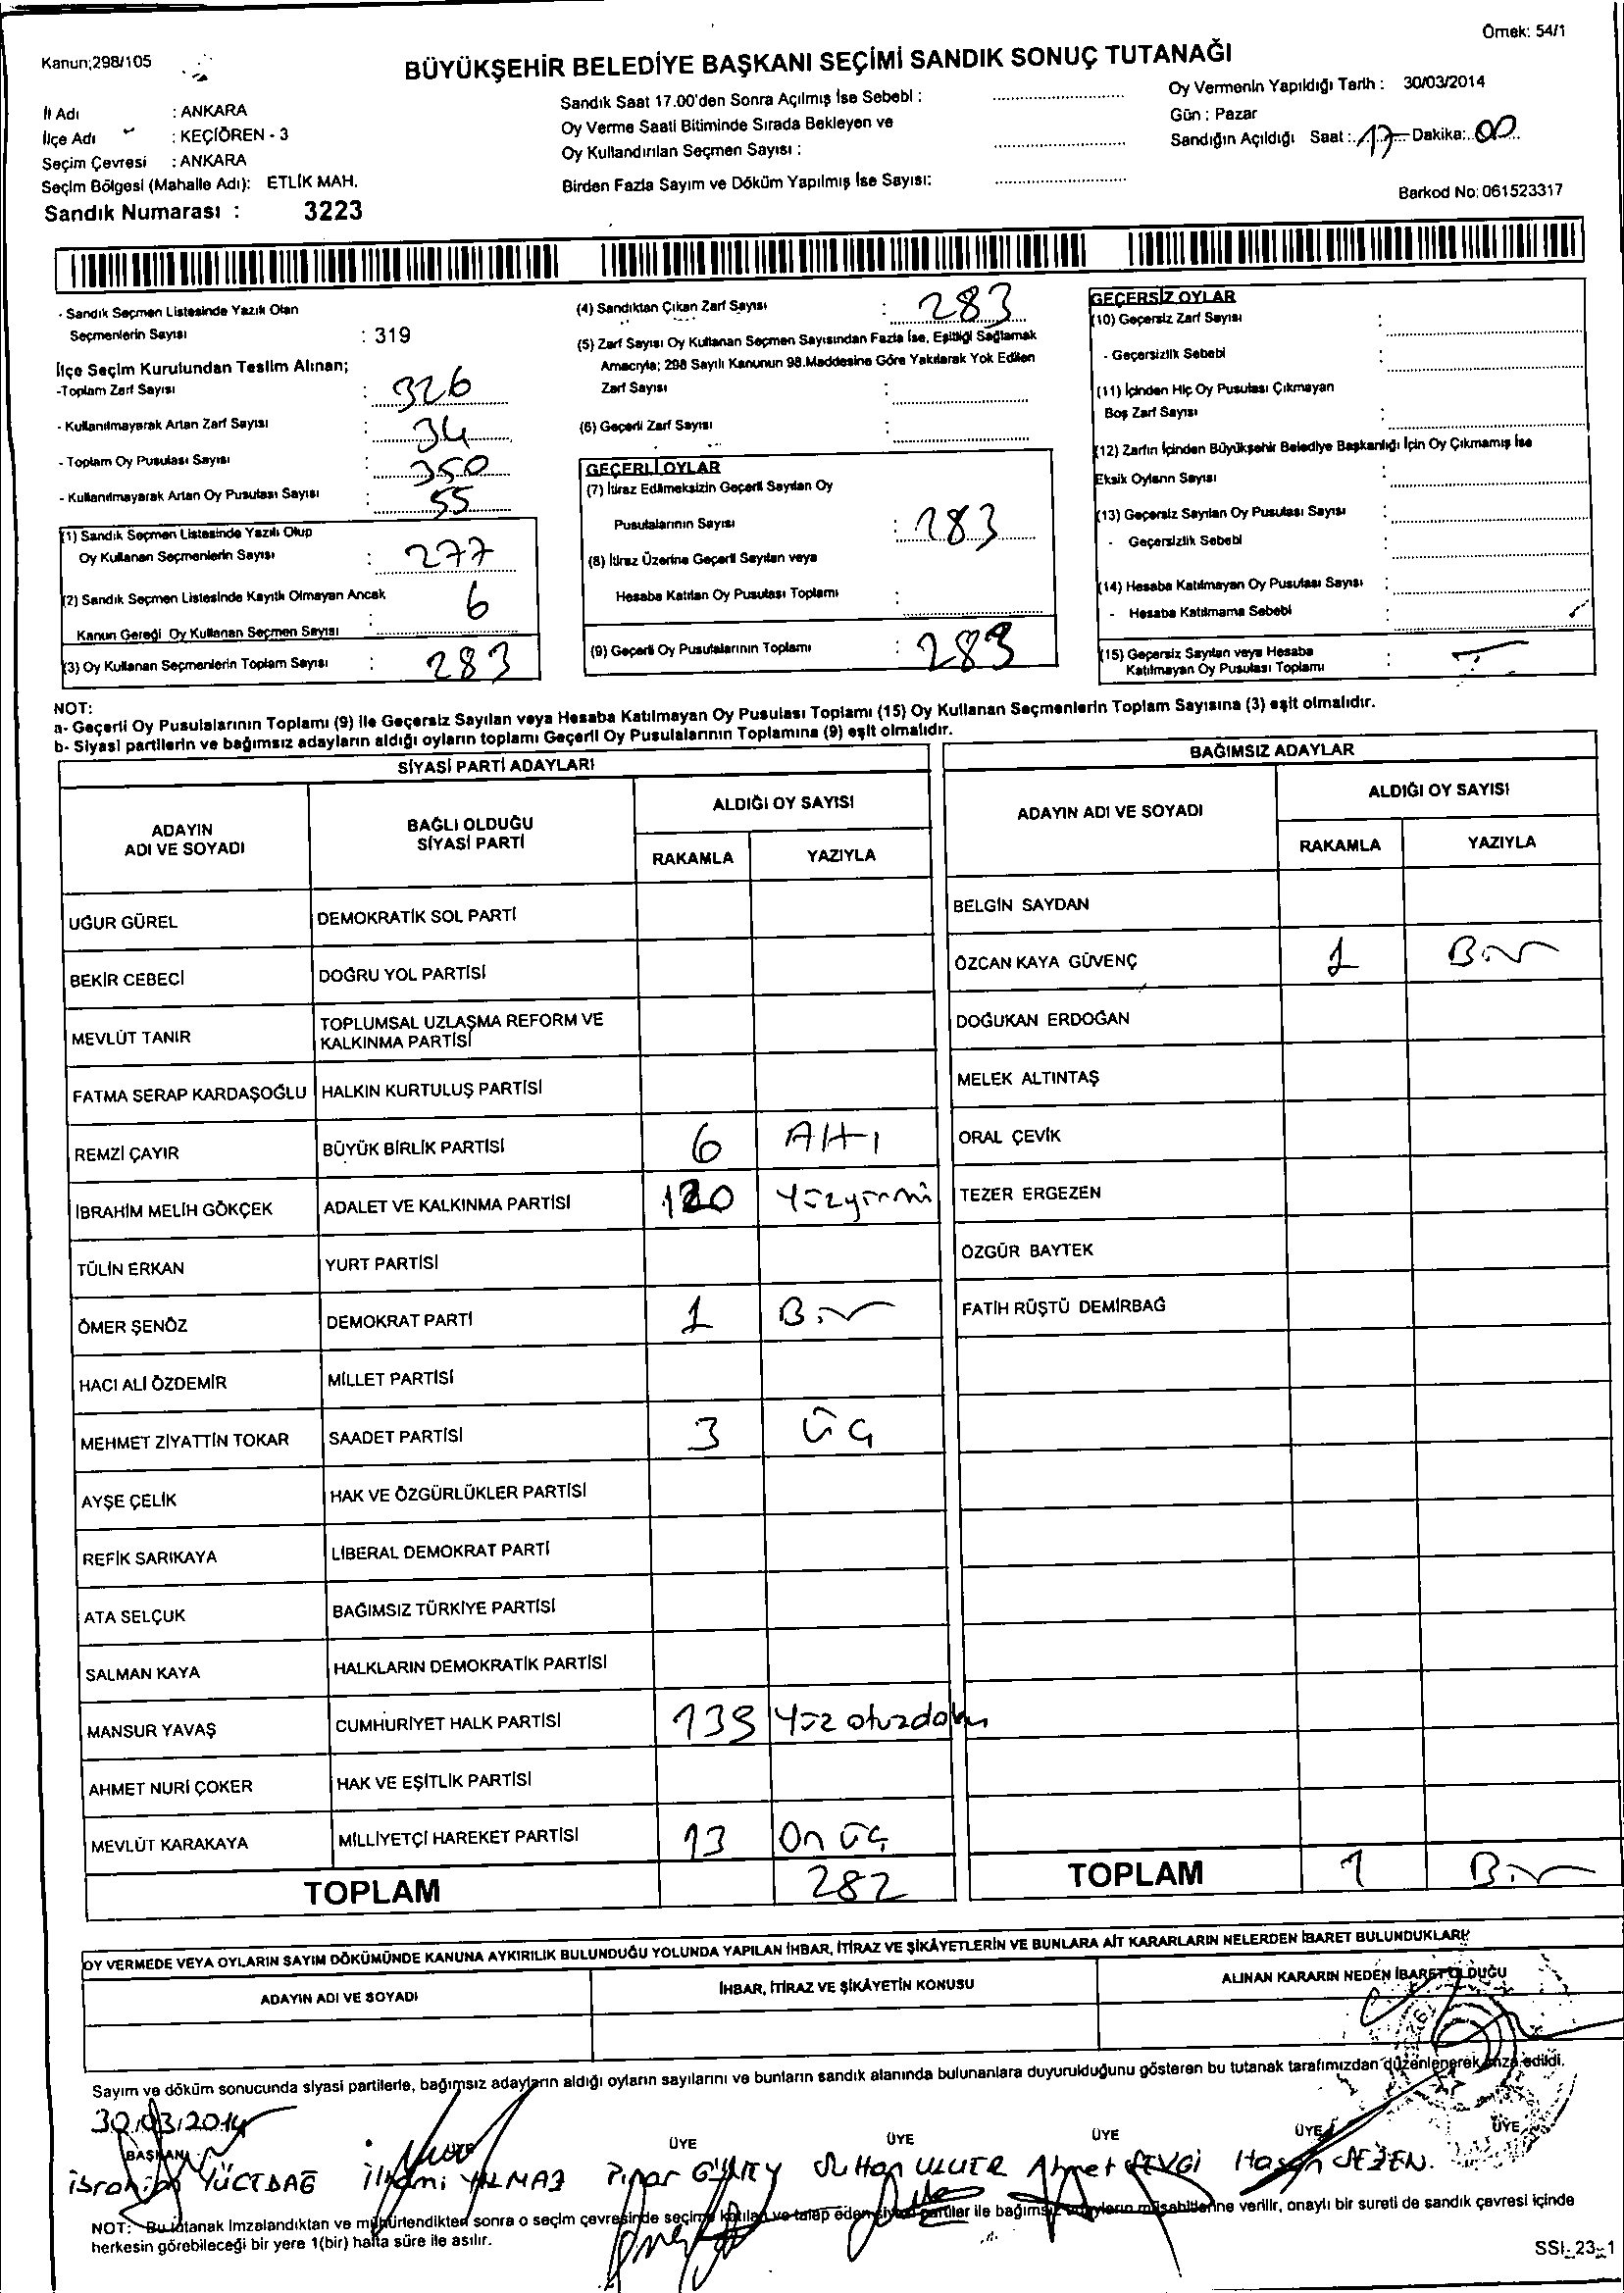 Örnek: 54/1
Kanun;298/105
BÜYÜKŞEHİR BELEDİYE BAŞKANI SEÇİMİ SANDIK SONUÇ TUTANAĞI
İl Adı : ANKARA
İlçe Adı : KEÇİÖREN - 3
Seçim Çevresi : ANKARA
Seçim Bölgesi (Mahalle Adı): ETLİK MAH.
Sandık Numarası : 3223
Sandık Saat 17.00'den Sonra Açılmış İse Sebebi :
Oy Verme Saati Bitiminde Sırada Bekleyen ve
Oy Kullandırılan Seçmen Sayısı :
Birden Fazla Sayım ve Döküm Yapılmış İse Sayısı:
Oy Vermenin Yapıldığı Tarih : 30/03/2014
Gün : Pazar
Sandığın Açıldığı Saat : 17 Dakika: 00
Barkod No: 061523317
- Sandık Seçmen Listesinde Yazılı Olan
Seçmenlerin Sayısı : 319
İlçe Seçim Kurulundan Teslim Alınan;
-Toplam Zarf Sayısı : 326
- Kullanılmayarak Artan Zarf Sayısı : 34
- Toplam Oy Pusulası Sayısı : 350
- Kullanılmayarak Artan Oy Pusulası Sayısı : 55
(1) Sandık Seçmen Listesinde Yazılı Olup
Oy Kullanan Seçmenlerin Sayısı : 277
(2) Sandık Seçmen Listesinde Kayıtlı Olmayan Ancak
Kanun Gereği Oy Kullanan Seçmen Sayısı : 6
(3) Oy Kullanan Seçmenlerin Toplam Sayısı : 283
(4) Sandıktan Çıkan Zarf Sayısı : 283
(5) Zarf Sayısı Oy Kullanan Seçmen Sayısından Fazla İse, Eşitliği Sağlamak
Amacıyla; 298 Sayılı Kanunun 98.Maddesine Göre Yakılarak Yok Edilen
Zarf Sayısı :
(6) Geçerli Zarf Sayısı :
GEÇERLİ OYLAR
(7) İtiraz Edilmeksizin Geçerli Sayılan Oy
Pusulalarının Sayısı : 283
(8) İtiraz Üzerine Geçerli Sayılan veya
Hesaba Katılan Oy Pusulası Toplamı :
(9) Geçerli Oy Pusulalarının Toplamı : 283
GEÇERSİZ OYLAR
(10) Geçersiz Zarf Sayısı :
- Geçersizlik Sebebi :
(11) İçinden Hiç Oy Pusulası Çıkmayan
Boş Zarf Sayısı :
(12) Zarfın İçinden Büyükşehir Belediye Başkanlığı İçin Oy Çıkmamış İse
Eksik Oyların Sayısı :
(13) Geçersiz Sayılan Oy Pusulası Sayısı :
- Geçersizlik Sebebi :
(14) Hesaba Katılmayan Oy Pusulası Sayısı :
- Hesaba Katılmama Sebebi :
(15) Geçersiz Sayılan veya Hesaba
Katılmayan Oy Pusulası Toplamı :
NOT:
a- Geçerli Oy Pusulalarının Toplamı (9) ile Geçersiz Sayılan veya Hesaba Katılmayan Oy Pusulası Toplamı (15) Oy Kullanan Seçmenlerin Toplam Sayısına (3) eşit olmalıdır.
b- Siyasi partilerin ve bağımsız adayların aldığı oyların toplamı Geçerli Oy Pusulalarının Toplamına (9) eşit olmalıdır.
SİYASİ PARTİ ADAYLARI
ADAYIN
ADI VE SOYADI
BAĞLI OLDUĞU
SİYASİ PARTİ
ALDIĞI OY SAYISI
RAKAMLA YAZIYLA
UĞUR GÜREL DEMOKRATİK SOL PARTİ
BEKİR CEBECİ DOĞRU YOL PARTİSİ
MEVLÜT TANIR TOPLUMSAL UZLAŞMA REFORM VE
KALKINMA PARTİSİ
FATMA SERAP KARDAŞOĞLU HALKIN KURTULUŞ PARTİSİ
REMZİ ÇAYIR BÜYÜK BİRLİK PARTİSİ 6 Altı
İBRAHİM MELİH GÖKÇEK ADALET VE KALKINMA PARTİSİ 120 Yüzyirmi
TÜLİN ERKAN YURT PARTİSİ
ÖMER ŞENÖZ DEMOKRAT PARTİ 1 Bir
HACI ALİ ÖZDEMİR MİLLET PARTİSİ
MEHMET ZİYATTİN TOKAR SAADET PARTİSİ 3 Üç
AYŞE ÇELİK HAK VE ÖZGÜRLÜKLER PARTİSİ
REFİK SARIKAYA LİBERAL DEMOKRAT PARTİ
ATA SELÇUK BAĞIMSIZ TÜRKİYE PARTİSİ
SALMAN KAYA HALKLARIN DEMOKRATİK PARTİSİ
MANSUR YAVAŞ CUMHURİYET HALK PARTİSİ 139 Yüz otuzdokuz
AHMET NURİ ÇOKER HAK VE EŞİTLİK PARTİSİ
MEVLÜT KARAKAYA MİLLİYETÇİ HAREKET PARTİSİ 13 On üç
TOPLAM 282
BAĞIMSIZ ADAYLAR
ADAYIN ADI VE SOYADI
ALDIĞI OY SAYISI
RAKAMLA YAZIYLA
BELGİN SAYDAN
ÖZCAN KAYA GÜVENÇ 1 Bir
DOĞUKAN ERDOĞAN
MELEK ALTINTAŞ
ORAL ÇEVİK
TEZER ERGEZEN
ÖZGÜR BAYTEK
FATİH RÜŞTÜ DEMİRBAĞ
TOPLAM 1 Bir
OY VERMEDE VEYA OYLARIN SAYIM DÖKÜMÜNDE KANUNA AYKIRILIK BULUNDUĞU YOLUNDA YAPILAN İHBAR, İTİRAZ VE ŞİKÂYETLERİN VE BUNLARA AİT KARARLARIN NELERDEN İBARET BULUNDUKLARI
ADAYIN ADI VE SOYADI İHBAR, İTİRAZ VE ŞİKÂYETİN KONUSU ALINAN KARARIN NEDEN İBARET OLDUĞU
Sayım ve döküm sonucunda siyasi partilerle, bağımsız adayların aldığı oyların sayılarını ve bunların sandık alanında bulunanlara duyurulduğunu gösteren bu tutanak tarafımızdan düzenlenerek imza edildi.
30/03/2014
BAŞKAN ÜYE ÜYE ÜYE ÜYE ÜYE ÜYE
İbrahim YÜCEDAĞ İlhami YILMAZ Pınar GÜNEY Sultan ULUER Ahmet SEVGİ Hasan SEZEN
NOT: Bu tutanak imzalandıktan ve mühürlendikten sonra o seçim çevresinde seçime katılan ve talep eden siyasi partiler ile bağımsız adayların müşahitlerine verilir, onaylı bir sureti de sandık çevresi içinde
herkesin görebileceği bir yere 1(bir) hafta süre ile asılır.
SSI_23_1